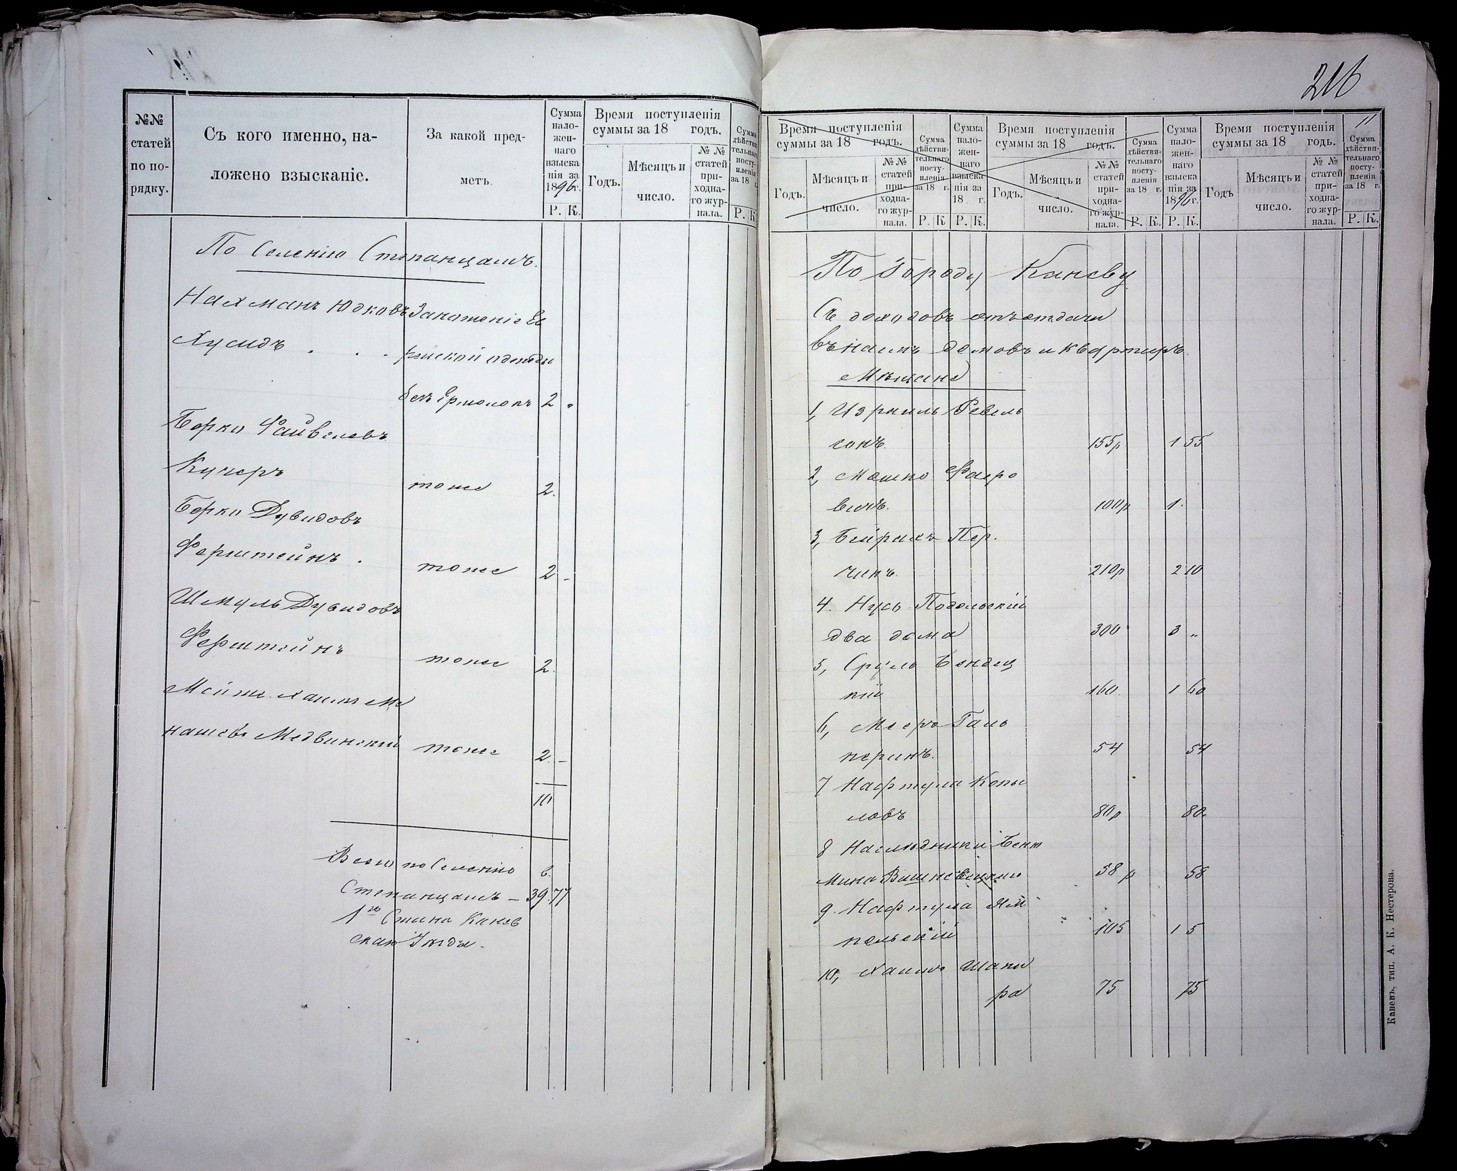 №№ статей по по- рядку.
Съ кого именно, на-
ложено взысканіе.
За какой пред-
метъ.
Сумма нало- жен- наго взыска нія за 1896 г.
Р. К.
Время поступленія
суммы за 18 годъ.
Годъ.
Мѣсяцъ и
число.
№ № статей при- ходна- го жур- нала.
Сумма дѣйстви- тельнаго посту- пленія за 18 г.
Р. К.
По Селенію Степанцамъ.
Нахманъ Юдковъ За ношеніе Ев
Хусидъ . . . рейской одежды
безъ Ермолокъ 2 "
Борко Файвелевъ
Кучеръ тоже 2.
Борко Дувидовъ
Ферштейнъ . тоже 2 -
Шмуль Дувидовъ
Ферштейнъ тоже 2.
Хаимъ Ме
нашевъ Медвинскій тоже 2 -
10
Всего по Селенію в.
Степанцамъ - 39 77
1го Стана Канев
скаго Уѣзда.
216
11
Время поступленія
суммы за 18 годъ.
Годъ.
Мѣсяцъ и
число.
№№ статей при- ходна- го жур- нала.
Сумма дѣйстви- тельнаго посту- пленія за 18 г.
Р. К
Сумма нало- жен- наго взыска нія за 18 г.
Р. К.
Время поступленія
суммы за 18 годъ.
Годъ.
Мѣсяцъ и
число.
№№ статей при- ходна- го жур- нала.
Сумма дѣйстви- тельнаго посту- пленія за 18 г.
Р. К.
Сумма нало- жен- наго взыска нія за 1896 г.
Р. К.
Время поступленія
суммы за 18 годъ.
Годъ.
Мѣсяцъ и
число.
№ № статей при- ходна- го жур- нала.
Сумма дѣйстви- тельнаго посту- пленія за 18 г.
Р. К.
По Городу Каневу
Съ доходовъ отъ отдачи
въ наемъ домовъ и квартиръ.
Мѣщане
1, Израиль Ревель
сонъ 155р 1 55
2, Мошко Фаеро
вичъ. 100р 1.
3, Бейрихъ Пер.
чикъ. 210р 2 10
4. Нусь Подольскій
два дома 300 3 "
5, Сруль Бендец
кій 160. 1 60
6, Мееръ Галь
перинъ. 54 54
7 Нафтула Копы
ловъ 80р 80.
8 Наслѣдники Бен
мина Вишневецкаго 58 р 58
9. Нафтула Ям
польскій 105 1 5
10, Хаимъ Шапи
ра 75 75
Каневъ, тип. А. К. Нестерова.